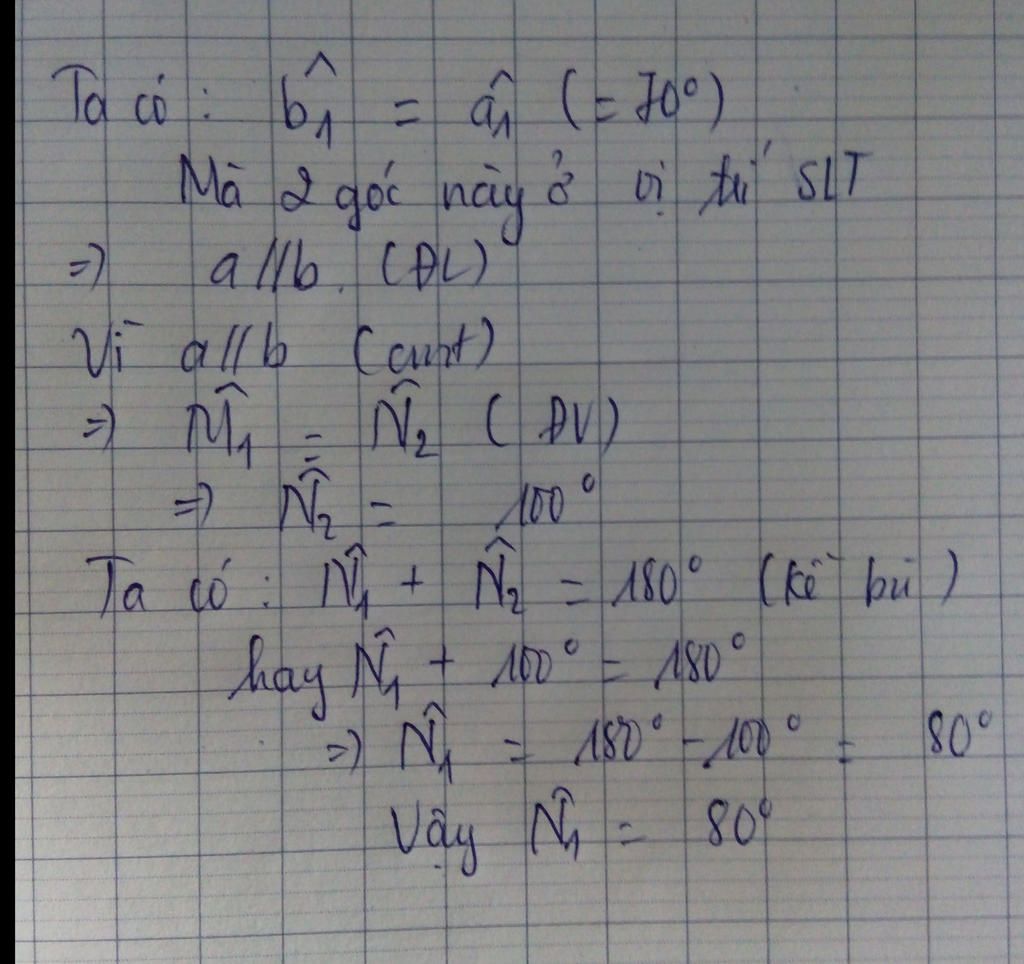 Ta có : b̂₁ = â₁ (= 70°)
Mà 2 góc này ở vị trí SLT
=> a//b. (ĐL)
Vì a//b (cmt)
=> M̂₁ = N̂₂ (ĐV)
=> N̂₂ = 100°
Ta có : N̂₁ + N̂₂ = 180° (kề bù)
hay N̂₁ + 100° = 180°
=> N̂₁ = 180° - 100° = 80°
Vậy N̂₁ = 80°